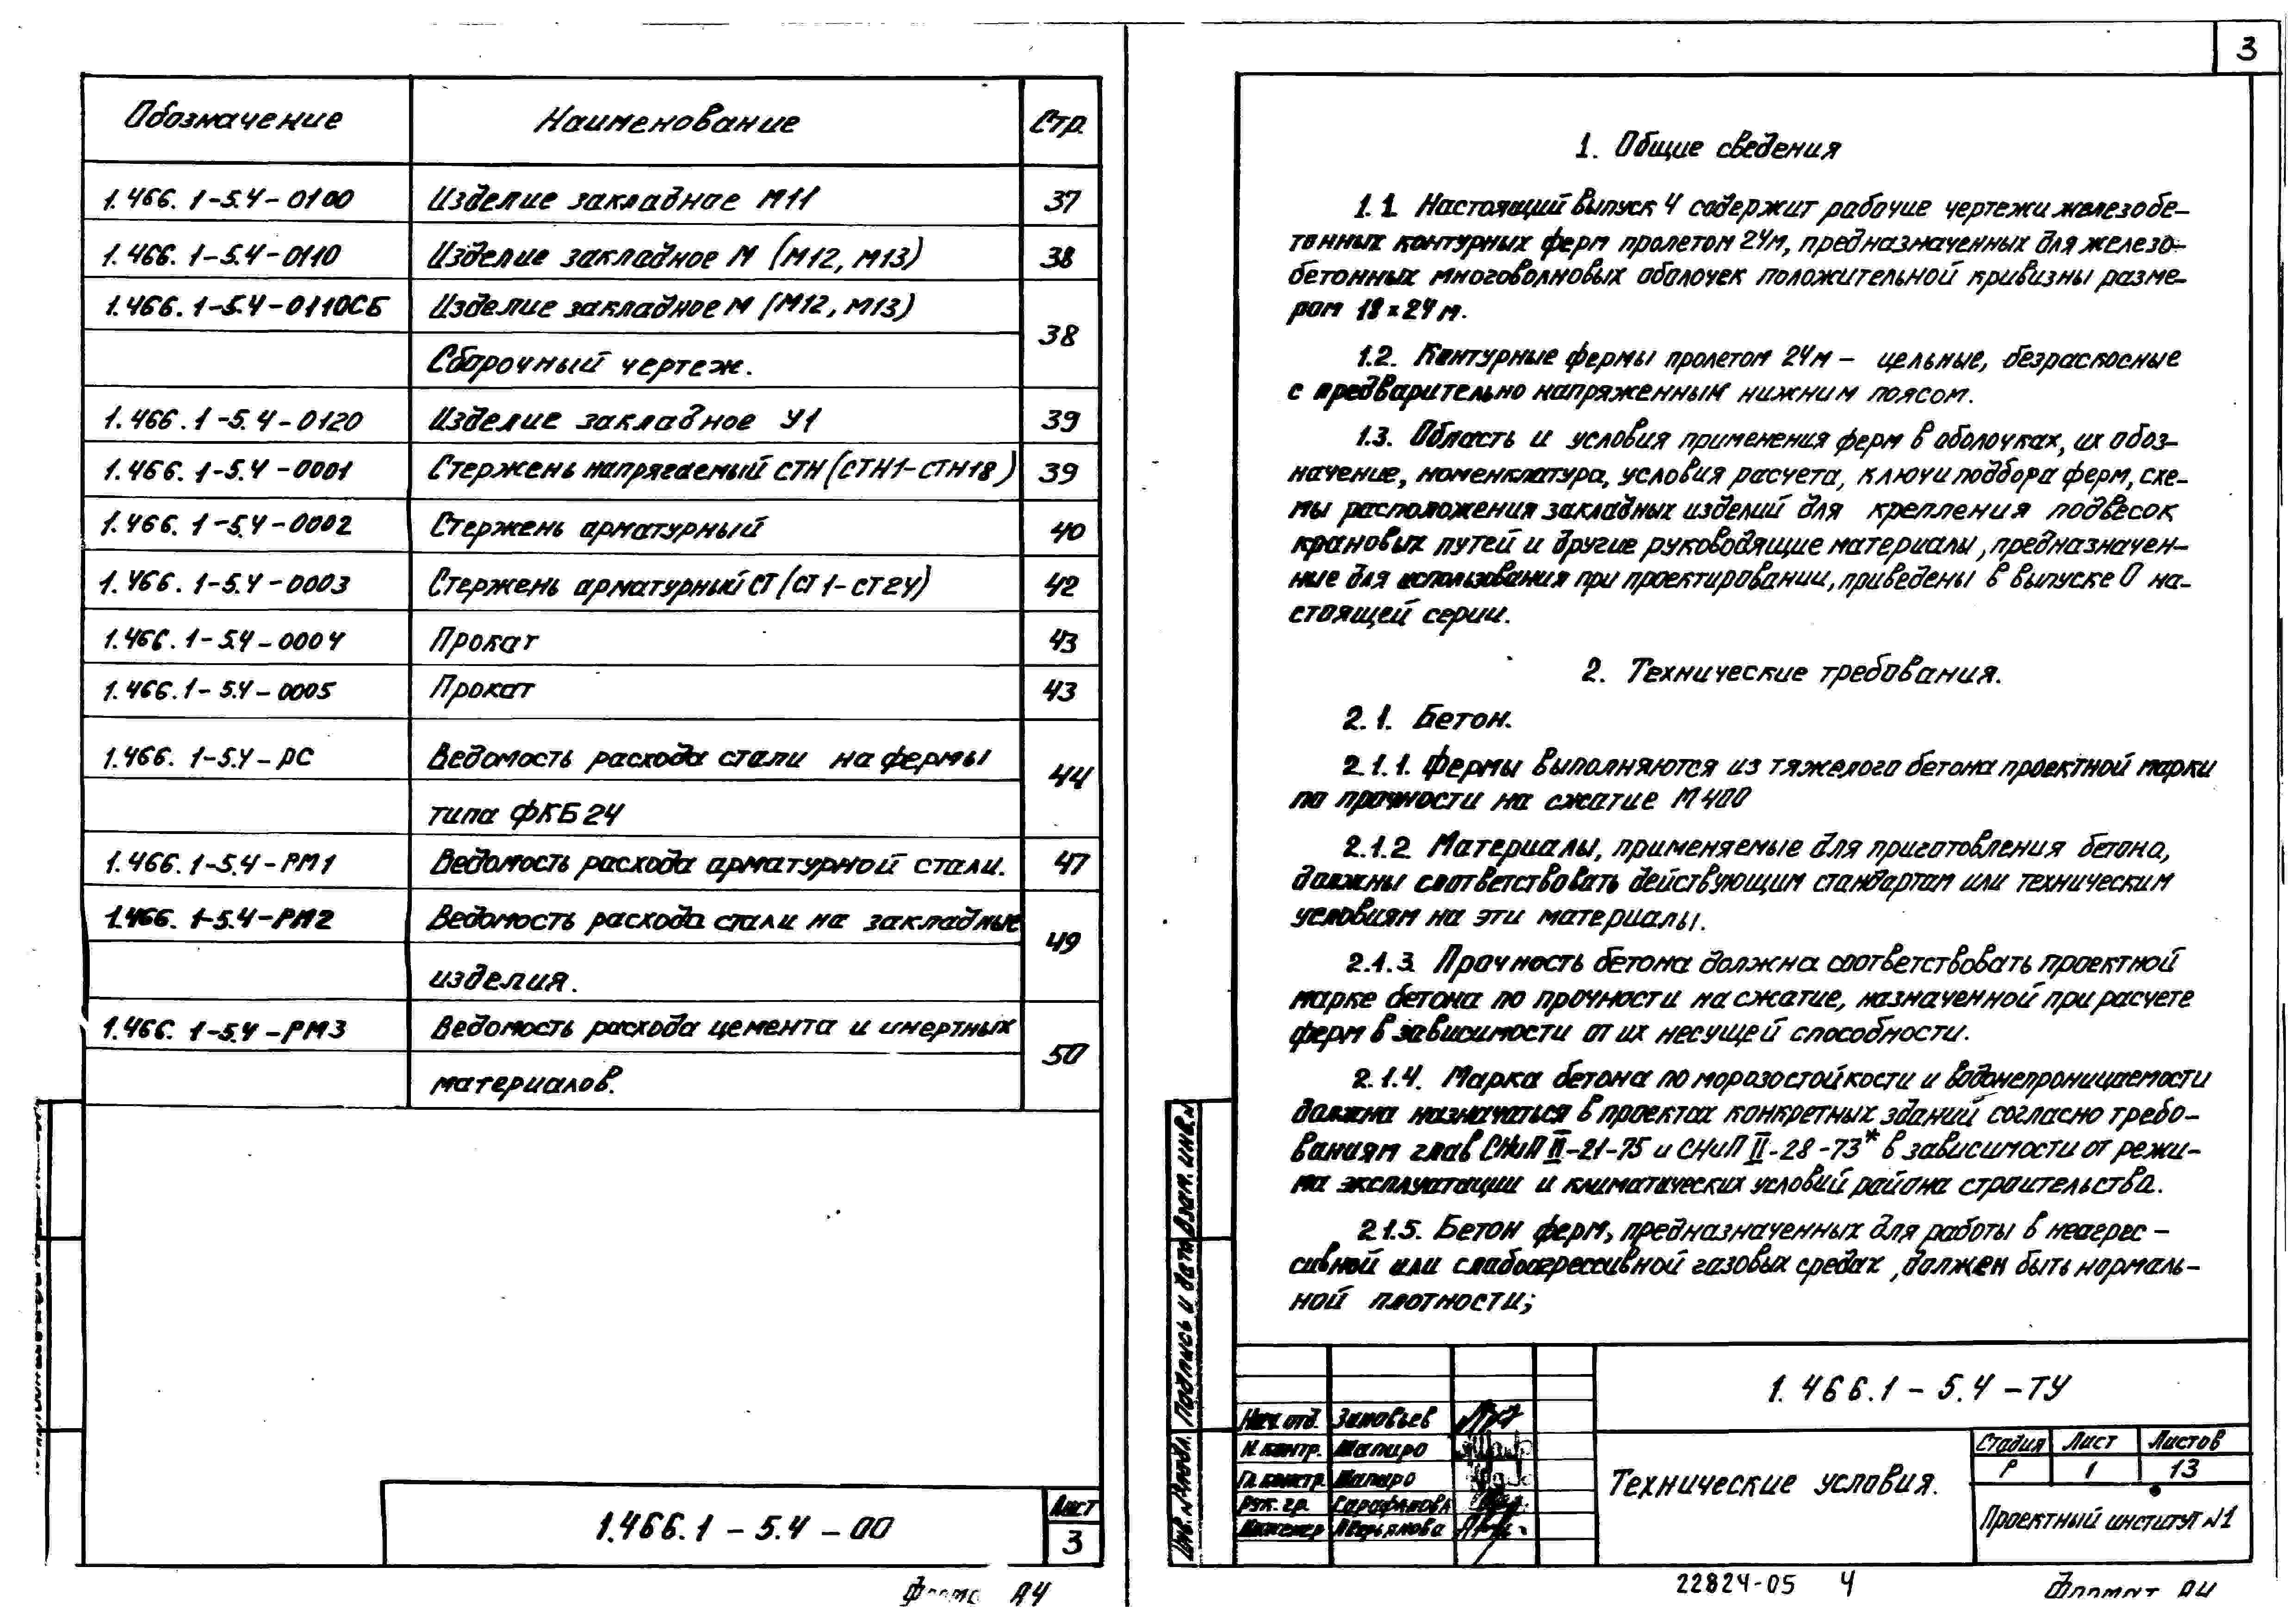 Обозначение Наименование Стр.
1.466.1-5.4-0100 Изделие закладное М11 37
1.466.1-5.4-0110 Изделие закладное М (М12, М13) 38
1.466.1-5.4-0110СБ Изделие закладное М (М12, М13) 38
Сборочный чертеж.
1.466.1-5.4-0120 Изделие закладное У1 39
1.466.1-5.4-0001 Стержень напрягаемый СТН (СТН1-СТН18) 39
1.466.1-5.4-0002 Стержень арматурный 40
1.466.1-5.4-0003 Стержень арматурный СТ (СТ1-СТ24) 42
1.466.1-5.4-0004 Прокат 43
1.466.1-5.4-0005 Прокат 43
1.466.1-5.4-РС Ведомость расхода стали на фермы 44
типа ФКБ24
1.466.1-5.4-РМ1 Ведомость расхода арматурной стали. 47
1.466.1-5.4-РМ2 Ведомость расхода стали на закладные 49
изделия.
1.466.1-5.4-РМ3 Ведомость расхода цемента и инертных 50
материалов.
1.466.1-5.4-00
Лист
3
А4
3
1. Общие сведения
1.1. Настоящий выпуск 4 содержит рабочие чертежи железобе-
тонных контурных ферм пролетом 24м, предназначенных для железо-
бетонных многоволновых оболочек положительной кривизны разме-
ром 18х24м.
1.2. Контурные фермы пролетом 24м – цельные, безраскосные
с предварительно напряженным нижним поясом.
1.3. Область и условия применения ферм в оболочках, их обоз-
начение, номенклатура, условия расчета, ключи подбора ферм, схе-
мы расположения закладных изделий для крепления подвесок
крановых путей и другие руководящие материалы, предназначен-
ные для использования при проектировании, приведены в выпуске 0 на-
стоящей серии.
2. Технические требования.
2.1. Бетон.
2.1.1. Фермы выполняются из тяжелого бетона проектной марки
по прочности на сжатие М400
2.1.2. Материалы, применяемые для приготовления бетона,
должны соответствовать действующим стандартам или техническим
условиям на эти материалы.
2.1.3. Прочность бетона должна соответствовать проектной
марке бетона по прочности на сжатие, назначенной при расчете
ферм в зависимости от их несущей способности.
2.1.4. Марка бетона по морозостойкости и водонепроницаемости
должна назначаться в проектах конкретных зданий согласно требо-
ваниям глав СНиП II-21-75 и СНиП II-28-73* в зависимости от режи-
ма эксплуатации и климатических условий района строительства.
2.1.5. Бетон ферм, предназначенных для работы в неагрес-
сивной или слабоагрессивной газовых средах, должен быть нормаль-
ной плотности;
Инв.№ подл. Подпись и дата Взам. инв.№
1.466.1-5.4-ТУ
Нач. отд. Зиновьев
Н. контр. Шапиро
Гл. констр. Шапиро
Рук. гр. Сарафанова
Инженер
Технические условия.
Стадия Лист Листов
Р 1 13
Проектный институт №1
22824-05 4
Формат А4